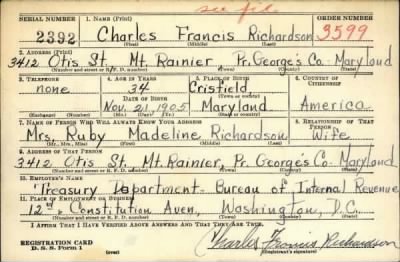 see file
SERIAL NUMBER 1. NAME (Print) ORDER NUMBER
2392 Charles Francis Richardson 3599
(First) (Middle) (Last)
2. ADDRESS (Print)
3412 Otis St. Mt. Rainier, Pr. George's Co. Maryland
(Number and street or R. F. D. number) (Town) (County) (State)
3. TELEPHONE 4. AGE IN YEARS 5. PLACE OF BIRTH 6. COUNTRY OF CITIZENSHIP
none 34 Crisfield
DATE OF BIRTH (Town or county)
Nov. 21, 1905 Maryland America
(Exchange) (Number) (Mo.) (Day) (Yr.) (State or country)
7. NAME OF PERSON WHO WILL ALWAYS KNOW YOUR ADDRESS 8. RELATIONSHIP OF THAT PERSON
Mrs. Ruby Madeline Richardson Wife
(Mr., Mrs., Miss) (First) (Middle) (Last)
9. ADDRESS OF THAT PERSON
3412 Otis St. Mt. Rainier, Pr. George's Co. Maryland
(Number and street or R. F. D. number) (Town) (County) (State)
10. EMPLOYER'S NAME
Treasury Department - Bureau of Internal Revenue
11. PLACE OF EMPLOYMENT OR BUSINESS
12th & Constitution Aven, Washington, D.C.
(Number and street or R. F. D. number) (Town) (County) (State)
I AFFIRM THAT I HAVE VERIFIED ABOVE ANSWERS AND THAT THEY ARE TRUE.
REGISTRATION CARD
D. S. S. Form 1
Charles Francis Richardson
(Registrant's signature)